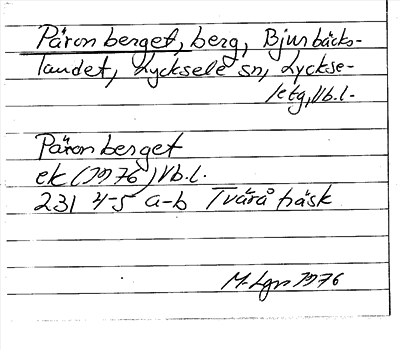 Päronberget, berg, Bjurbäcks-
landet, Lycksele sn, Lyckse-
le tg, Vb.l.
Päronberget
ek (1976) Vb.l.
231 4-5 a-b Tvåråträsk
M-Lgn 1976